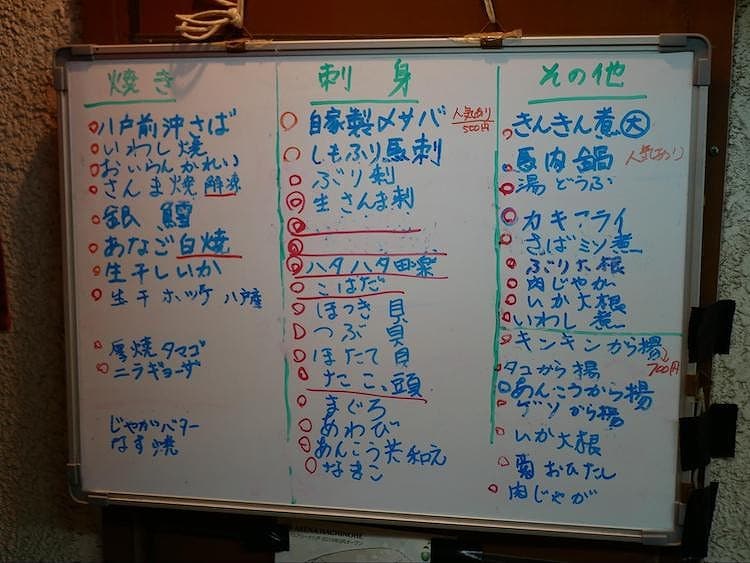 焼き
八戸前沖さば
いわし焼
おいらんがれい
さんま焼 解凍
銀鱈
あなご白焼
生干しいか
生干ホッケ 八戸産
厚焼タマゴ
ニラギョーザ
じゃがバター
なす焼
刺身
自家製〆サバ 人気あり 500円
しもふり馬刺
ぶり刺
生さんま刺
ハタハタ田楽
こはだ
ほっき貝
つぶ貝
ほたて貝
たこ、頭
まぐろ
あわび
あんこう共和え
なまこ
その他
きんきん煮 大
馬肉鍋 人気あり
湯どうふ
カキフライ
さばミソ煮
ぶり大根
肉じゃが
いか大根
いわし煮
キンキンから揚 700円
タコから揚
あんこうから揚
ゲソから揚
いか大根
菊おひたし
肉じゃが